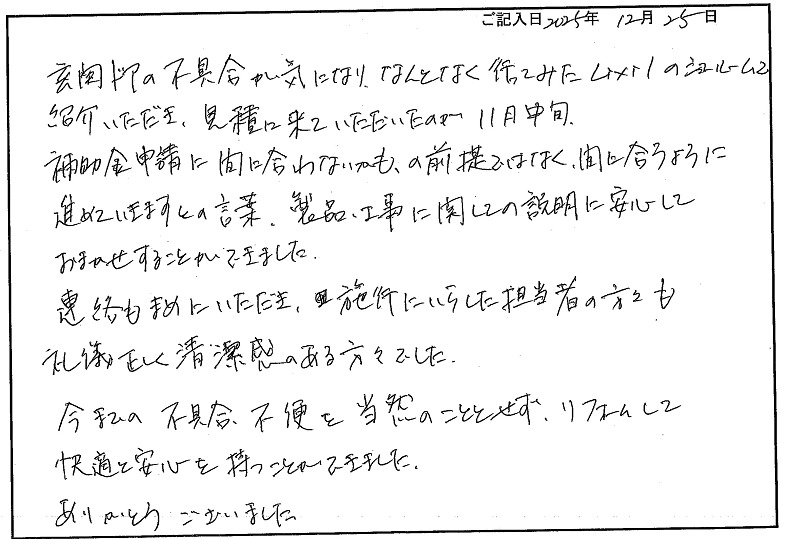 ご記入日 2025年 12月 25日
玄関ドアの不具合が気になり、なんとなく行ってみたLIXILのショールームで
紹介いただき、見積に来ていただいたのが11月中旬。
補助金申請に間に合わないかも、の前提ではなく、間に合うように
進めていきますとの言葉、製品、工事に関しての説明に安心して
おまかせすることができました。
連絡もまめにいただき、施行にいらした担当者の方々も
礼儀正しく清潔感のある方々でした。
今までの不具合、不便を当然のこととせず、リフォームして
快適と安心を持つことができました。
ありがとうございました